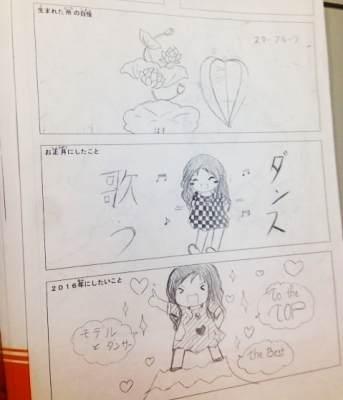 生まれた所の自慢
スターフルーツ
お正月にしたこと
歌う
ダンス
2016年にしたいこと
モデル
と ダンサー
To the
TOP
the Best